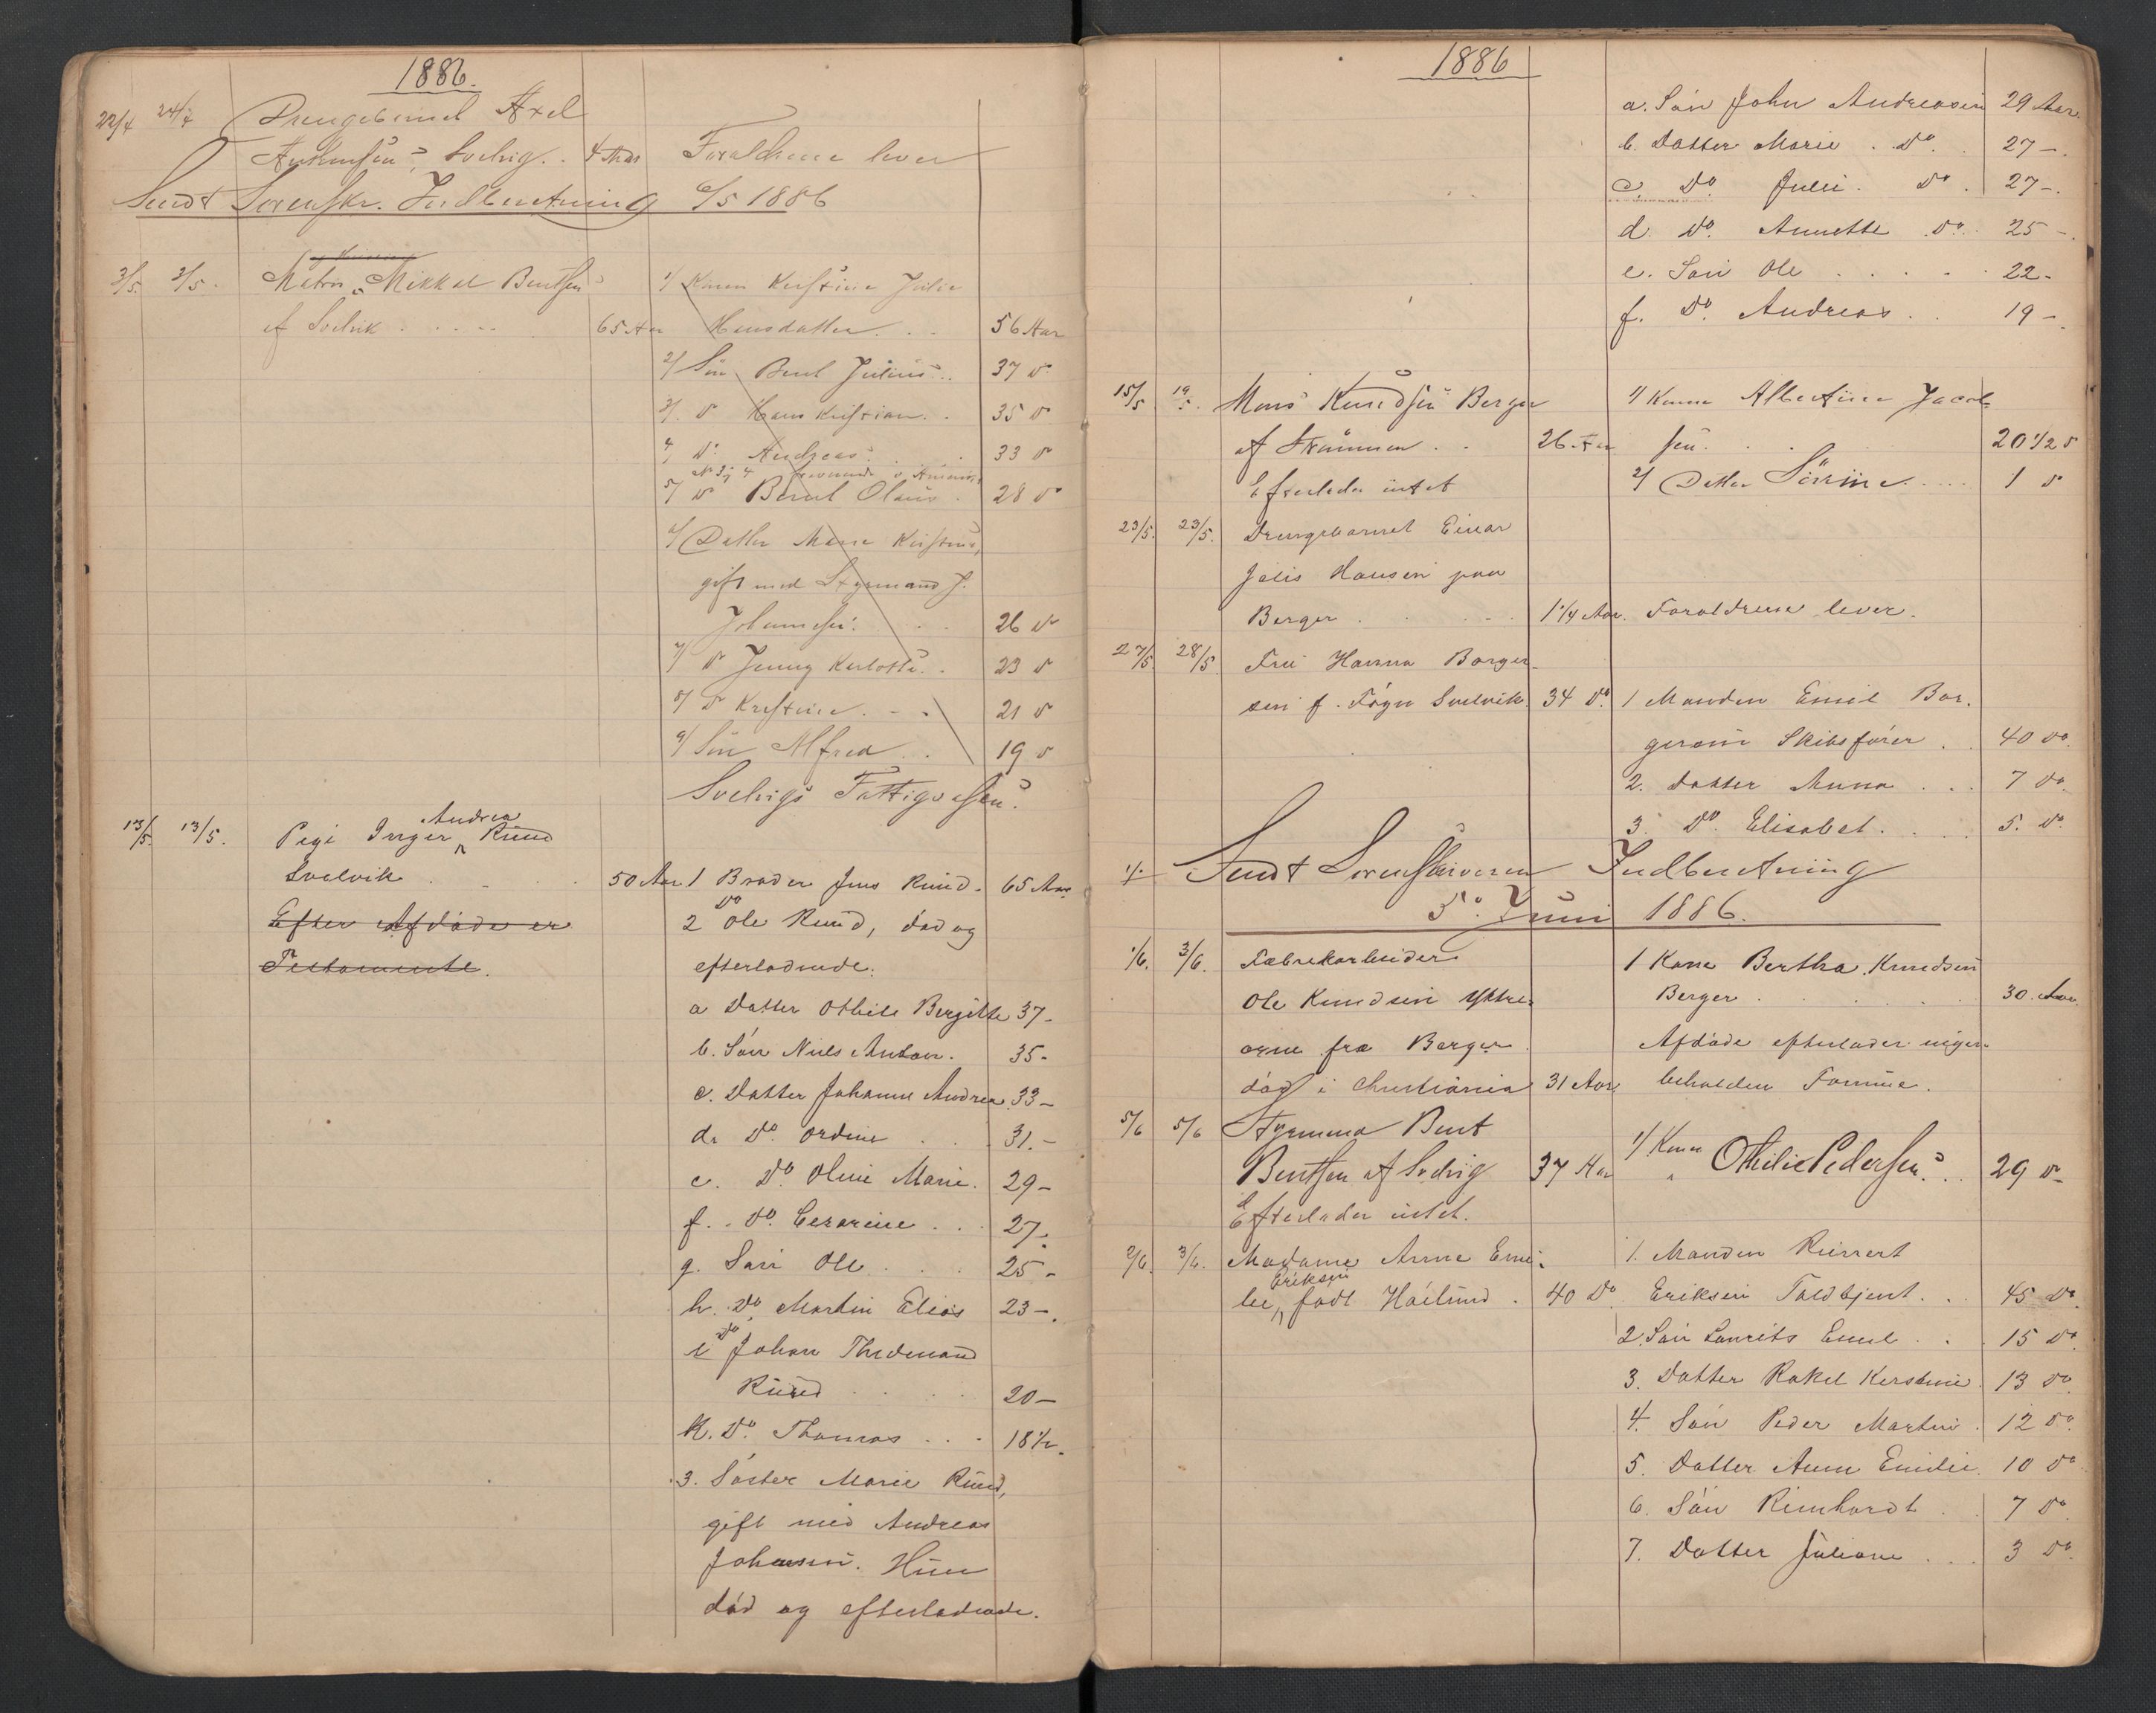 1886.
22/4 24/4 Drengebarnet Axel
Anthonsen, Svelvig. . 4 Aar Forældrene lever
Sendt Sorenskr. Indberetning 6/5 1886
3/5. 3/5. Matros Mikkal Bentsen 1/ Konen Kirstine Julie
af Svelvik . . . . 65 Aar Hansdatter . . 56 Aar
2/ Sön Bent Julius . . 37 Do
3/. Do Hans Kristian . . 35 Do
4/ Do Andreas . . 33 Do
No 3 & 4 fraværende i Amerika
5/ Do Bernt Olaus . 28 Do
6/ Datter Maren Kirstine,
gift med Styrmand J.
Johannesen . . 26 Do
7/ Do Jenny Karlotte . . 23 Do
8/ Do Kristine . - . 21 Do
9/ Sön Alfred . . 19 Do
Svelvigs Fattigvæsen.
13/5. 13/5. Pige Inger Andrea Ruud
Svelvik . . . 50 Aar 1 Broder Jens Ruud. 65 Aar.
Efter Afdöde er 2 Do Ole Ruud, död og
Testamente. efterladende.
a Datter Othile Bergitte 37 -
b. Sön Niels Anton. 35 -
c. Datter Johanne Andrea 33 -
d. Do. Ordine . . 31. -
e. Do Oline Marie. 29 -
f. Do. Cesarine . . . 27 -.
g. Sön Ole . . . 25 -
h. Do. Martin Elias 23 -.
i Do Johan Thidemand
Ruud . . . . 20 -
k. Do. Thomas . . . 18 1/2.
3. Söster Marie Ruud,
gift med Andreas
Johansen. Hun
död og efterladende.
1886
a. Sön John Andreasen 29 Aar.
b. Datter Marie . Do. 27 -.
c. Do. Julie . Do . 27 -.
d. Do. Annette . Do. . 25 -.
e. Sön Ole . . . . . 22 -
f. Do. Andreas . . 19 -.
15/5 19/5. Mons Knudsen Berger 1/ Konen Albertine Jacob-
af Strömmen . . 26 Aar sen . . . 20 1/2 Do
Efterlader intet 2/ Datter Sörine . . . . 1 Do
23/5. 23/5. Drengebarnet Einar
Jalis Hansen paa
Berger . . . . . 1 1/4 Aar. Forældrene lever.
27/5. 28/5 Fru Hanna Borger-
sen f. Fögn Svelvik. 34 Do. 1 Manden Emil Bor-
gersen Skibsförer . . 40 Do.
2. Datter Anna . . . 7 Do.
3. Do. Elisabet. . . . 5. Do.
Sendt Sorenskriveren Indberetning
5. Juni 1886.
1/6. 3/6. Fabrikarbeider 1 Kone Bertha Knudsen
Ole Knudsen Yttre- Berger . . . . . 30 Aar.
orne fra Berger. Afdöde efterlader ingen
död i Christiania 31 Aar beholden Formue.
5/6 5/6 Styrmand Bent 1/ Konen
Bentsen af Svelvig 37 Aar Othilie Pedersen . . 29 Do
Efterlader intet.
2/6. 3/6. Madame Anne Emi- 1. Manden Reinert
lie Eriksen, födt Höilund . 40 Do Eriksen Toldbjent. . . 45 Do.
2. Sön Laurits Emil . . . 15 Do.
3. Datter Rakel Kerstine. 13 Do.
4. Sön Peder Martin . 12 Do.
5. Datter Anne Emilie. 10 Do
6. Sön Reinhardt . . 7 Do.
7. Datter Juliane . . . 3 Do.